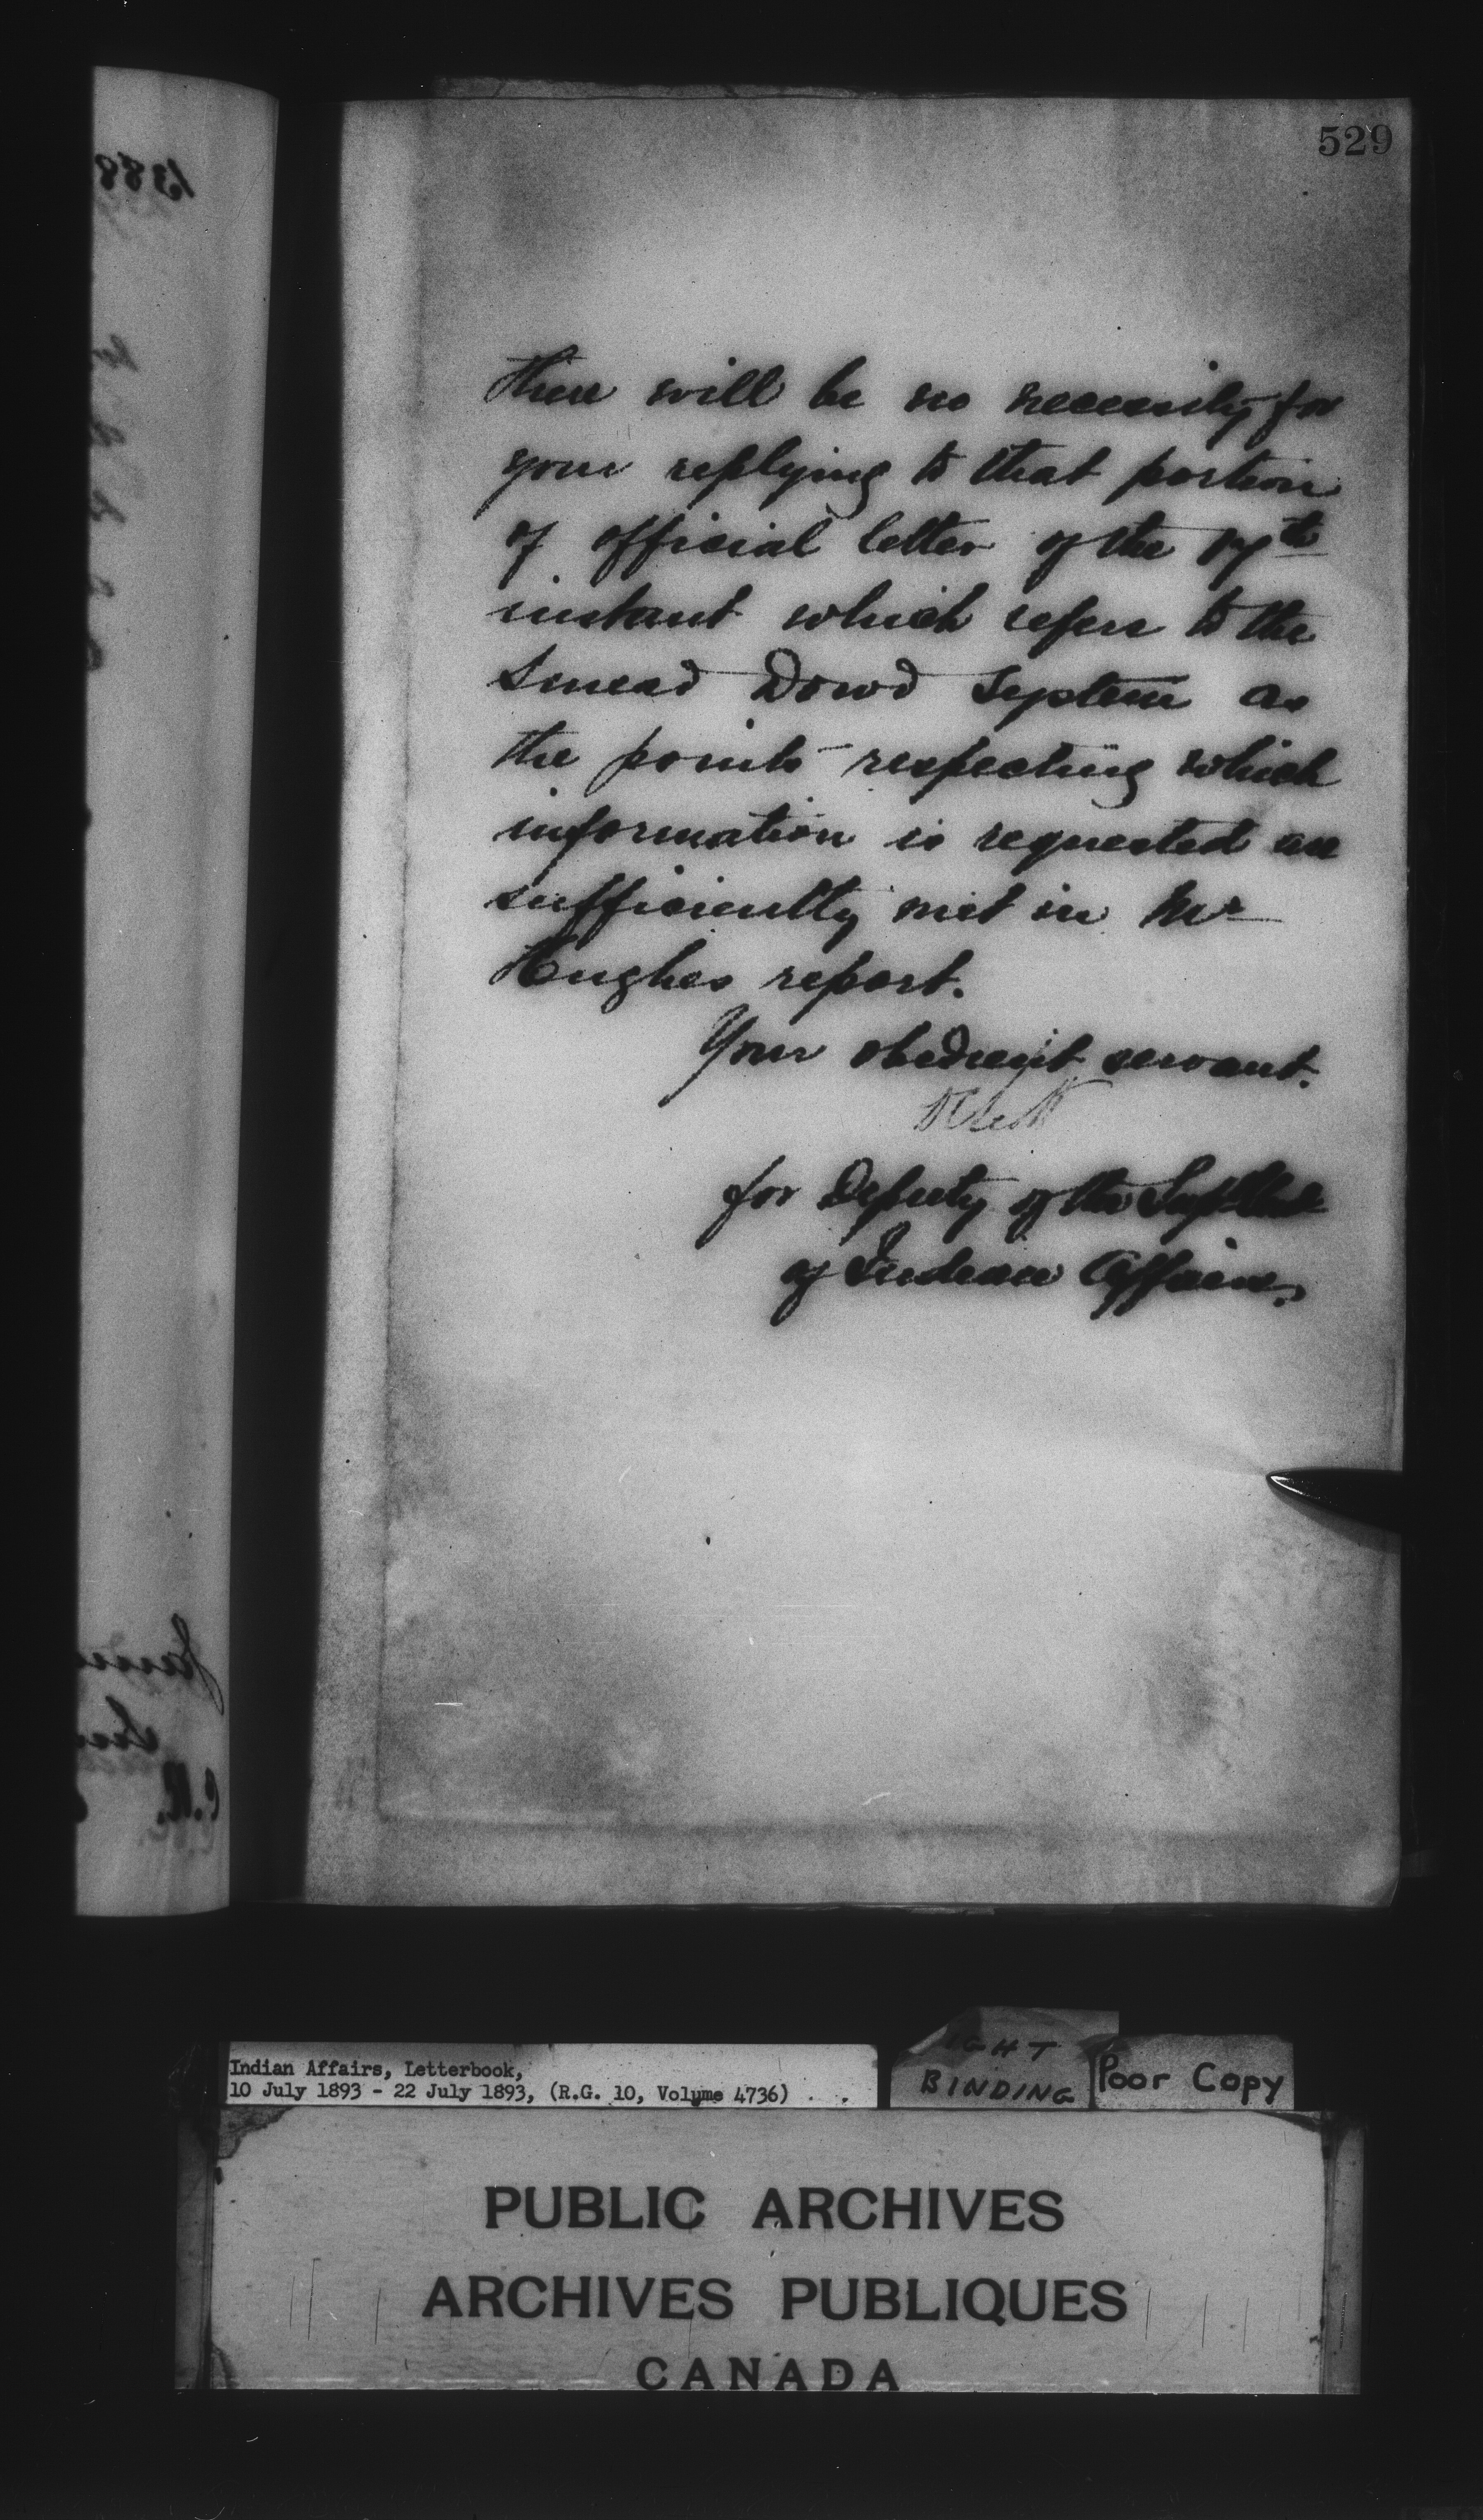 529
there will be no necessity for
your replying to that portion
of official letter of the 17th
instant which refers to the
Smead Dowd System as
the points respecting which
information is requested are
sufficiently met in Mr
Hughes report.
Your obedient servant.
for Deputy of the Supt Genl
of Indian Affairs.
Indian Affairs, Letterbook,
10 July 1893 - 22 July 1893, (R.G. 10, Volume 4736)
IGHT
BINDING
Poor Copy
PUBLIC ARCHIVES
ARCHIVES PUBLIQUES
CANADA